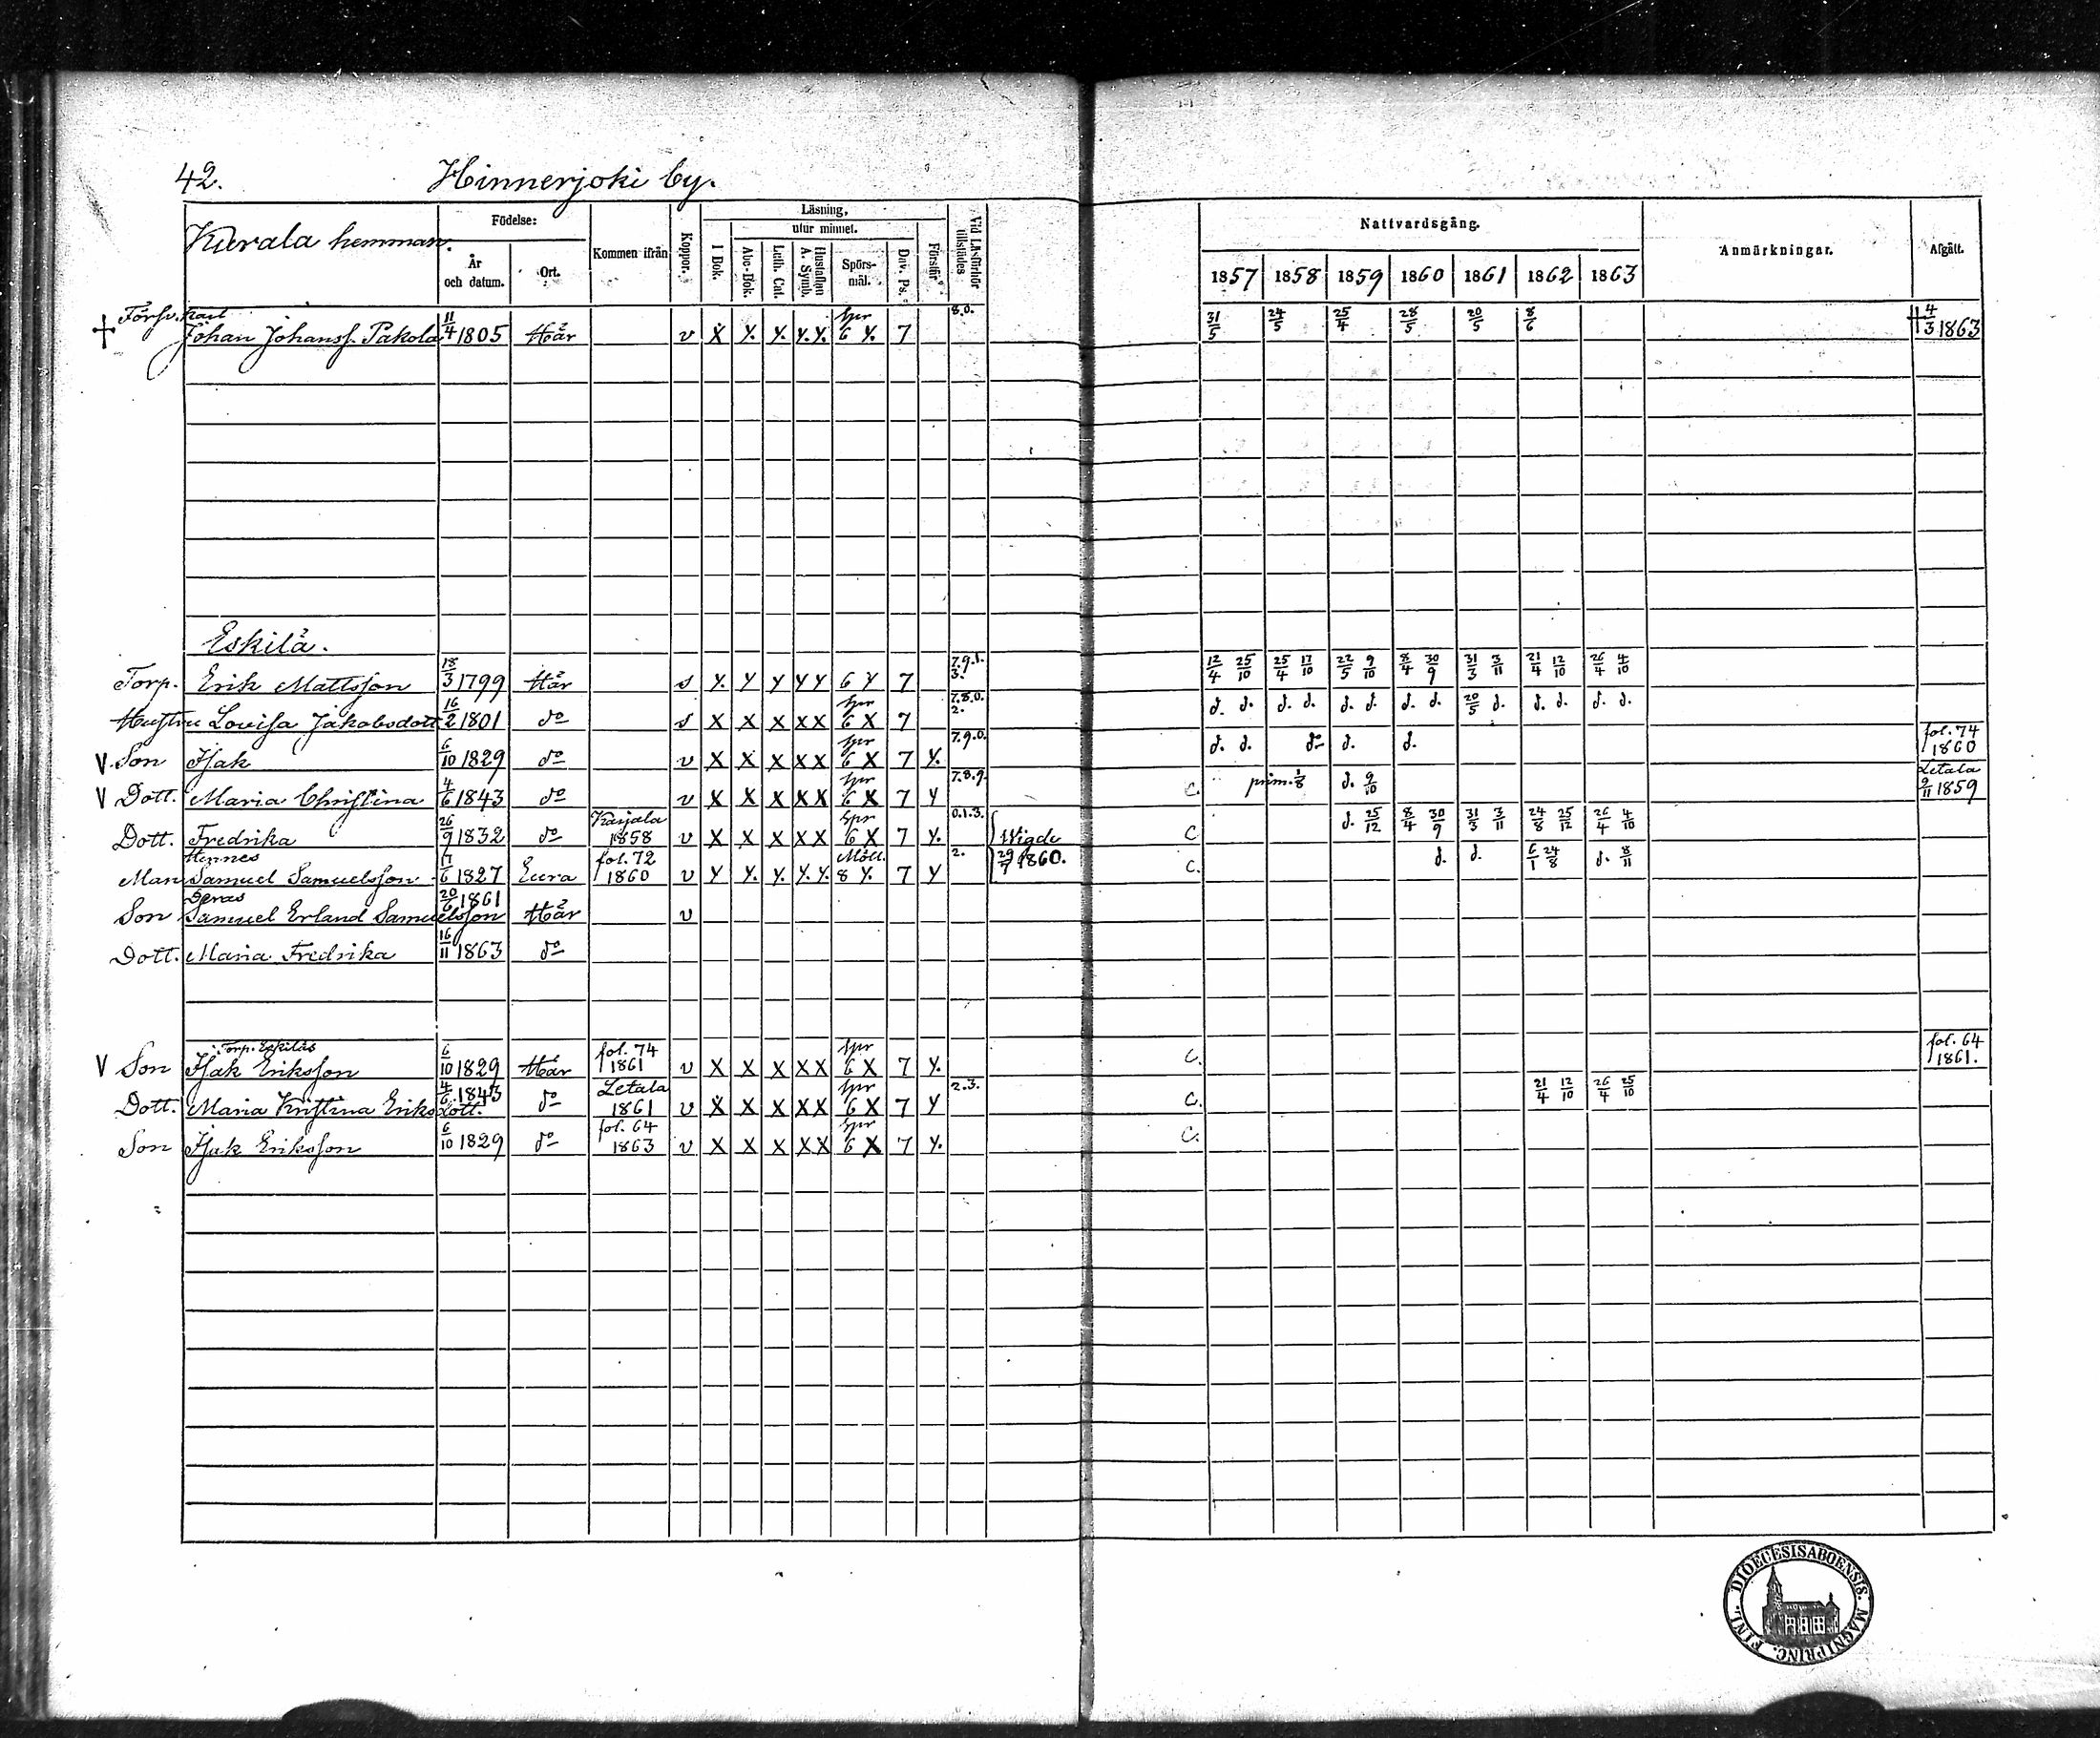 42. Hinnerjoki by.
Kurala hemman. Födelse: År och datum. Ort. Kommen ifrån Koppor. Läsning, I Bok. utur minnet. Abc-Bok. Luth. Cat. Hustaflan A. Symb. Spörsmål. Dav. Ps. Förstår Vid Läsförhör tillstädes Nattvardsgång. 1857 1858 1859 1860 1861 1862 1863 Anmärkningar. Afgått.
Johan Johanss. Pakola 11/4 1805 Här v X Y. Y. Y. Y. 6 Y. 7 8.0. 31/5 24/5 25/4 28/5 20/5 8/6 † 4/3 1863
Eskilä.
Torp. Erik Mattsson 18/3 1799 Här s Y. Y Y Y Y 6 Y 7 7.9.1. 3. 12/4 25/10 25/4 17/10 22/5 9/10 8/4 30/9 31/3 3/11 21/4 12/10 26/4 4/10
Hustru Lovisa Jakobsdott. 16/2 1801 do s X X X X X spr 6 X 7 7.8.0. 2. d. d. d. d. d. d. d. d. 20/5 d. d. d. d. d.
V. Son Isak 6/10 1829 do v X X X X X spr 6 X 7 Y. 7.9.0. d. d. do d. d. fol. 74 1860
V Dott. Maria Christina 4/6 1843 do v X X X X X spr 6 X 7 Y 7.8.9. C. prim. 1/8 d. 9/10 Letala 9/11 1859
Dott. Fredrika 26/9 1832 do Karjala 1858 v X X X X X spr 6 X 7 Y. 0.1.3. Wigde C d. 25/12 8/4 30/9 31/3 3/11 24/8 25/12 26/4 4/10
Hennes
Man Samuel Samuelsson 17/6 1827 Eura fol. 72 1860 v Y Y. Y. Y. Y. 8 Y. 7 Y 2. 29/7 1860. C. d. d. 6/1 24/8 d. 8/11
Deras
Son Samuel Erland Samuelsson 20/6 1861 Här v
Dott. Maria Fredrika 16/11 1863 do
Torp. Eskiläs
V Son Isak Eriksson 6/10 1829 Här fol. 74 1861 v X X X X X spr 6 X 7 Y. C. fol. 64 1861.
Dott. Maria Kristina Eriksdott. 4/6 1843 do Letala 1861 v X X X X X spr 6 X 7 Y 2.3. C. 21/4 12/10 26/4 25/10
Son Isak Eriksson 6/10 1829 do fol. 64 1863 v X X X X X spr 6 X 7 Y. C.
DIOECESIS ABOENSIS. MAGNI PRINC. FINL.